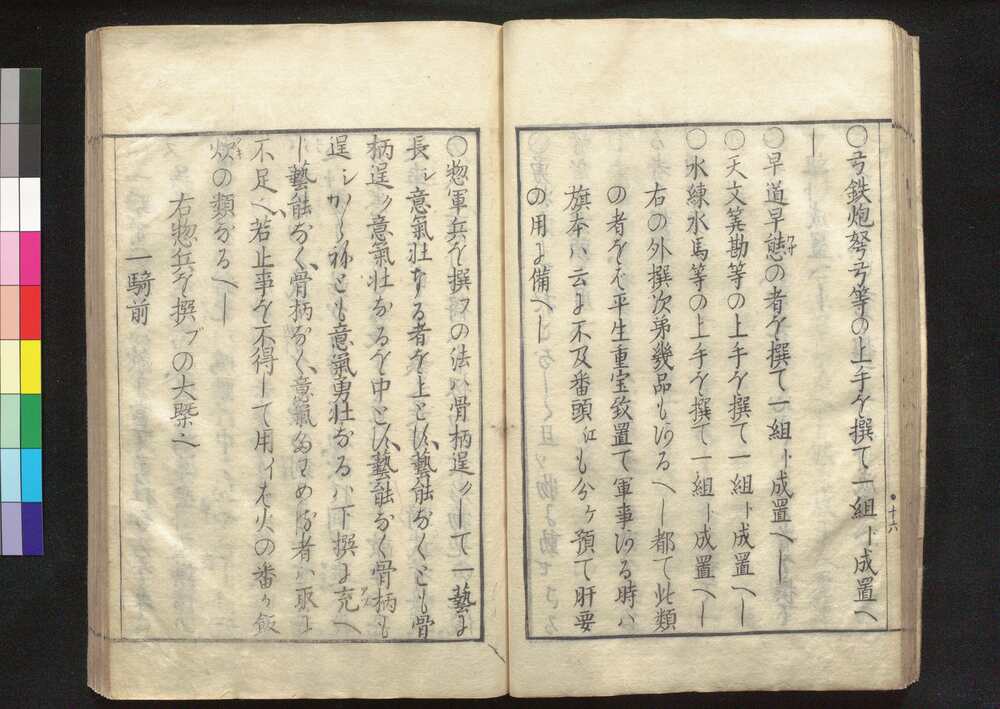 ○弓鉄炮弩弓等の上手を撰て一組ト成置ヘ
シ
○早道早態の者を撰て一組ト成置ヘシ
○天文筭勘等の上手を撰て一組ト成置ヘシ
○水練水馬等の上手を撰て一組ト成置ヘシ
右の外撰次第幾品も有るヘシ都て此類
の者をハ平生重宝致置て軍事有る時ハ
旗本ハ云に不及番頭江も分ケ預て肝要
の用に備ヘシ
十六
○惣軍兵を撰フの法ハ骨柄逞クして一藝に
長シ意氣壮なる者を上とす藝能なくとも骨
柄逞ク意氣壮なるを中とす藝能なく骨柄も
逞シからねとも意氣勇壮なるハ下撰に充ヘ
シ藝能なく骨柄なく意氣たわめる者ハ取に
不足ヘ若止事を不得して用イハ火の番カ飯
炊の類なるヘシ
右惣兵を撰フの大槩ヘ
一騎前